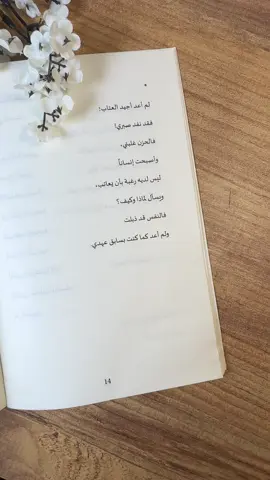 *
لم أعد أجيد العتاب؛
فقد نفد صبري!
فالحزن غلبني،
وأصبحت إنساناً
ليس لديه رغبة بأن يعاتب،
ويسأل لماذا وكيف؟
فالنفس قد ذبلت
ولم أعد كما كنت بسابق عهدي
14